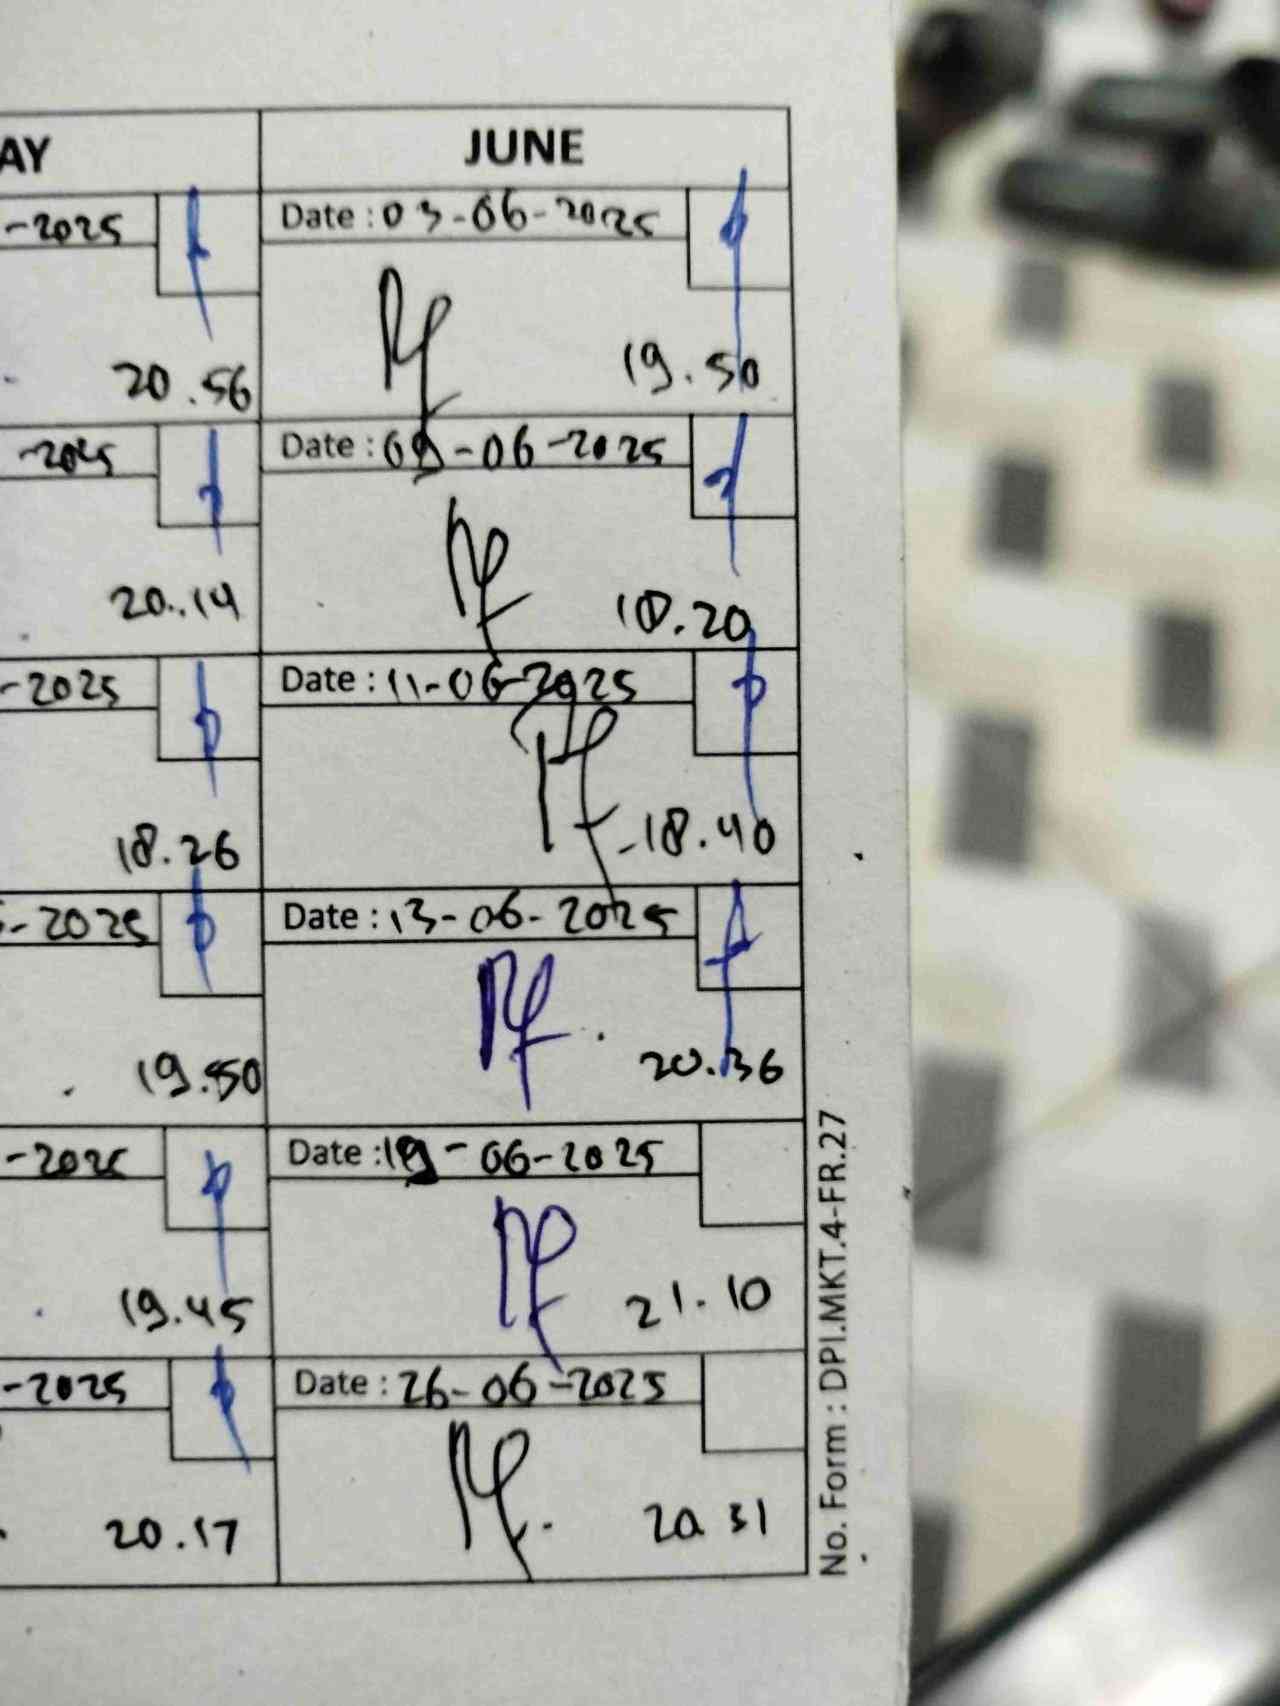 AY
JUNE
-2025
Date : 03-06-2025
20.56
19.50
-2025
Date : 09-06-2025
20.14
18.20
-2025
Date : 11-06-2025
18.26
18.40
-2025
Date : 13-06-2025
19.50
20.36
-2025
Date : 19-06-2025
19.45
21.10
-2025
Date : 26-06-2025
20.17
20 31
No. Form : DPI.MKT.4-FR.27